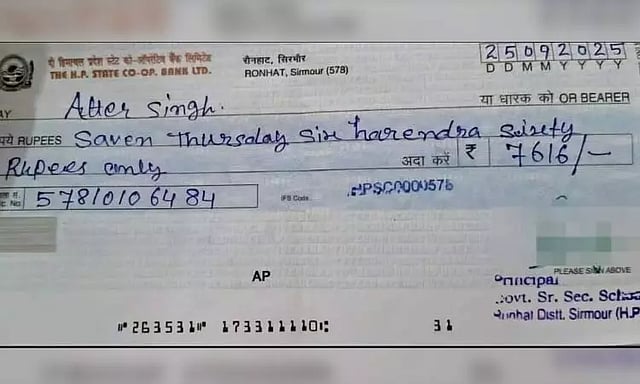 दी हिमाचल प्रदेश स्टेट को-ऑपरेटिव बैंक लिमिटेड
THE H.P. STATE CO-OP. BANK LTD.
रौनहाट, सिरमौर
RONHAT, Sirmour (578)
25092025
D D M M Y Y Y Y
AY Atter Singh.
या धारक को OR BEARER
पये RUPEES Saven Thursday Six harendra Sixety
Rupees only
अदा करें ₹ 7616/-
c. No. 57810106484
IFS Code HPSC0000576
AP
PLEASE SIGN ABOVE
Principal
Govt. Sr. Sec. School
Ronhat Distt. Sirmour (H.P
⑈263531⑈ 173311110⑆ 31